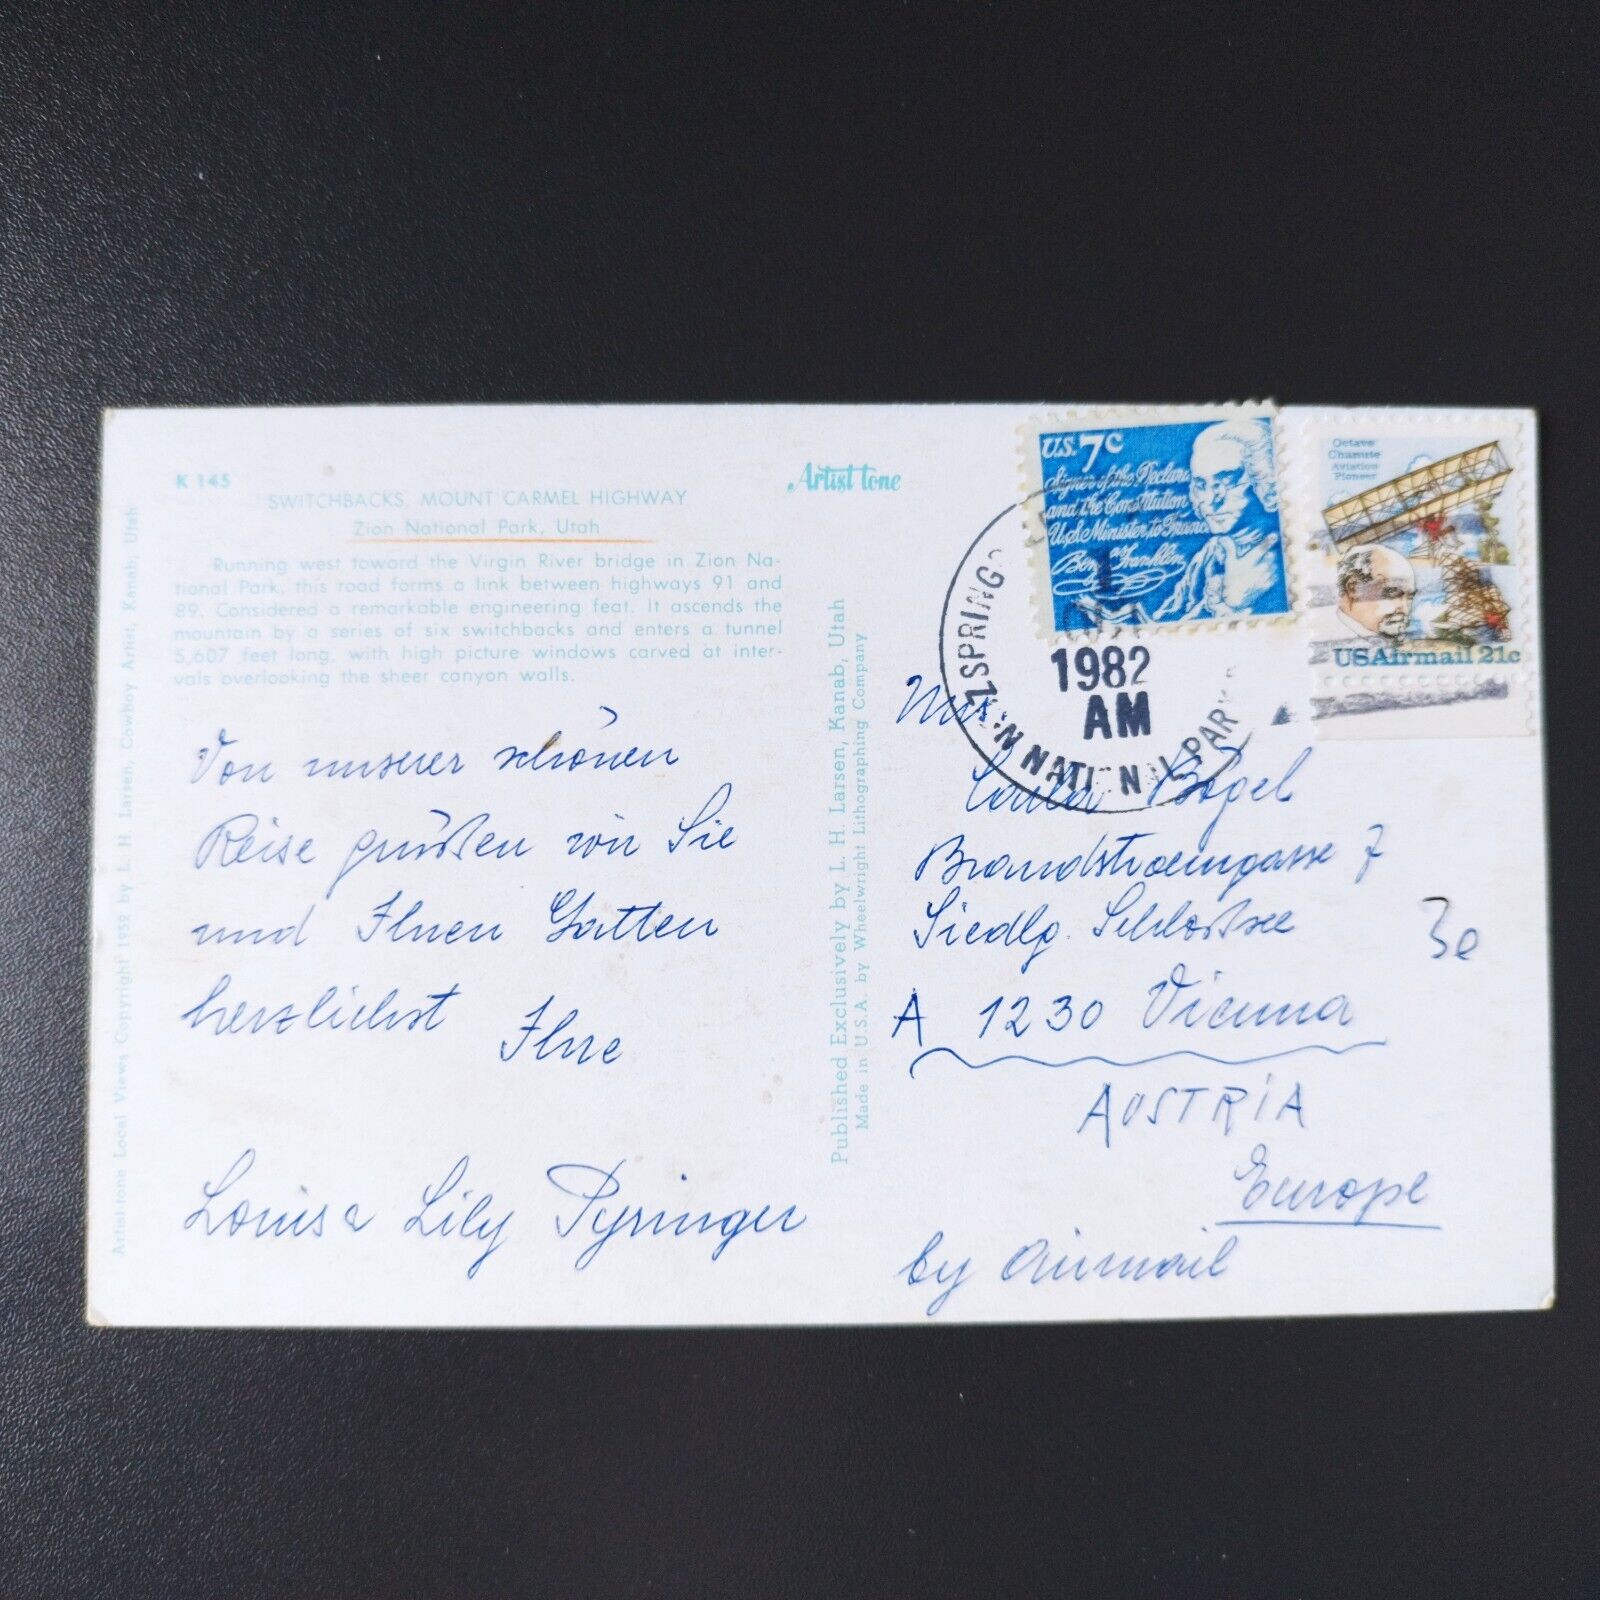 K 145
SWITCHBACKS, MOUNT CARMEL HIGHWAY
Zion National Park, Utah
Running west toward the Virgin River bridge in Zion Na-
tional Park, this road forms a link between highways 91 and
89. Considered a remarkable engineering feat. It ascends the
mountain by a series of six switchbacks and enters a tunnel
5,607 feet long, with high picture windows carved at inter-
vals overlooking the sheer canyon walls.
Artist tone
Von unserer schönen
Reise grüßen wir Sie
und Ihnen Gatten
herzlichst
Ihre
Louis & Lily Pyringer
Artist-tone Local Views Copyright 1952 by L. H. Larsen, Cowboy Artist, Kanab, Utah
Published Exclusively by L. H. Larsen, Kanab, Utah
Made in U.S.A. by Wheelwright Lithographing Company
U.S. 7c
Signer of the Declara
and the Constitution
U.S. Minister to France
Benj Franklin
Octave
Chanute
Aviation
Pioneer
USAirmail 21c
SPRING
1982
AM
N NATI N L PAR
Mrs.
Carla Bögel
7
Siedlg. Schloßsee
A 1230 Vienna
AUSTRIA
Europe
by Airmail
3e